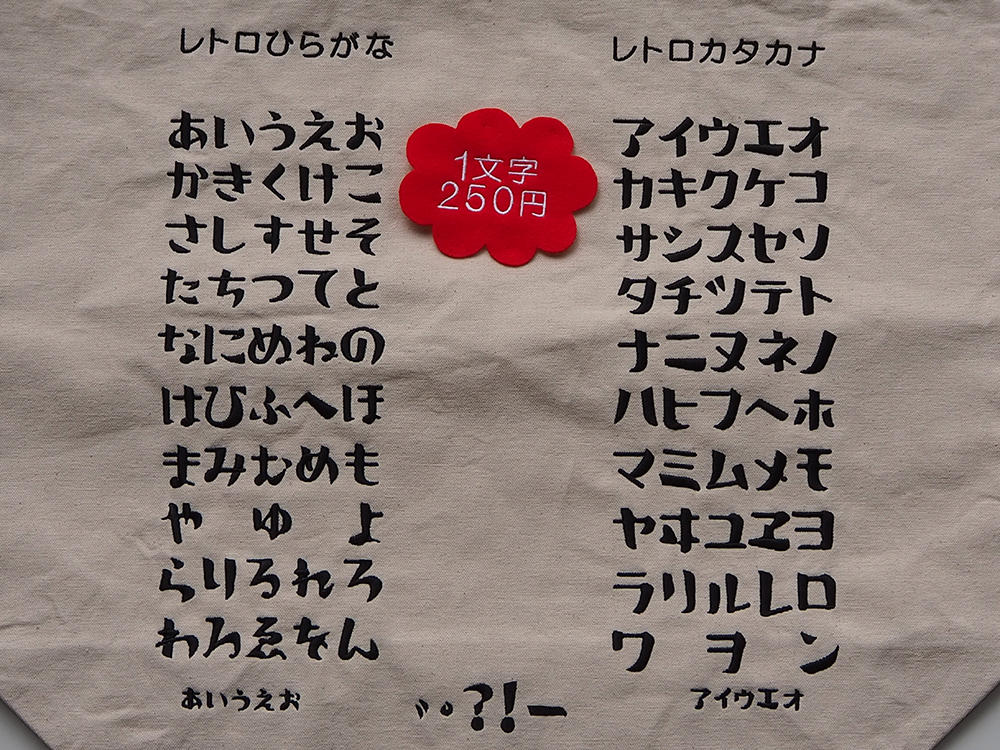 レトロひらがな
あいうえお
かきくけこ
さしすせそ
たちつてと
なにぬねの
はひふへほ
まみむめも
や ゆ よ
らりるれろ
わゐゑをん
あいうえお
1文字
250円
レトロカタカナ
アイウエオ
カキクケコ
サシスセソ
タチツテト
ナニヌネノ
ハヒフヘホ
マミムメモ
ヤヰユヱヨ
ラリルレロ
ワ ヲ ン
アイウエオ
゛゜?!ー